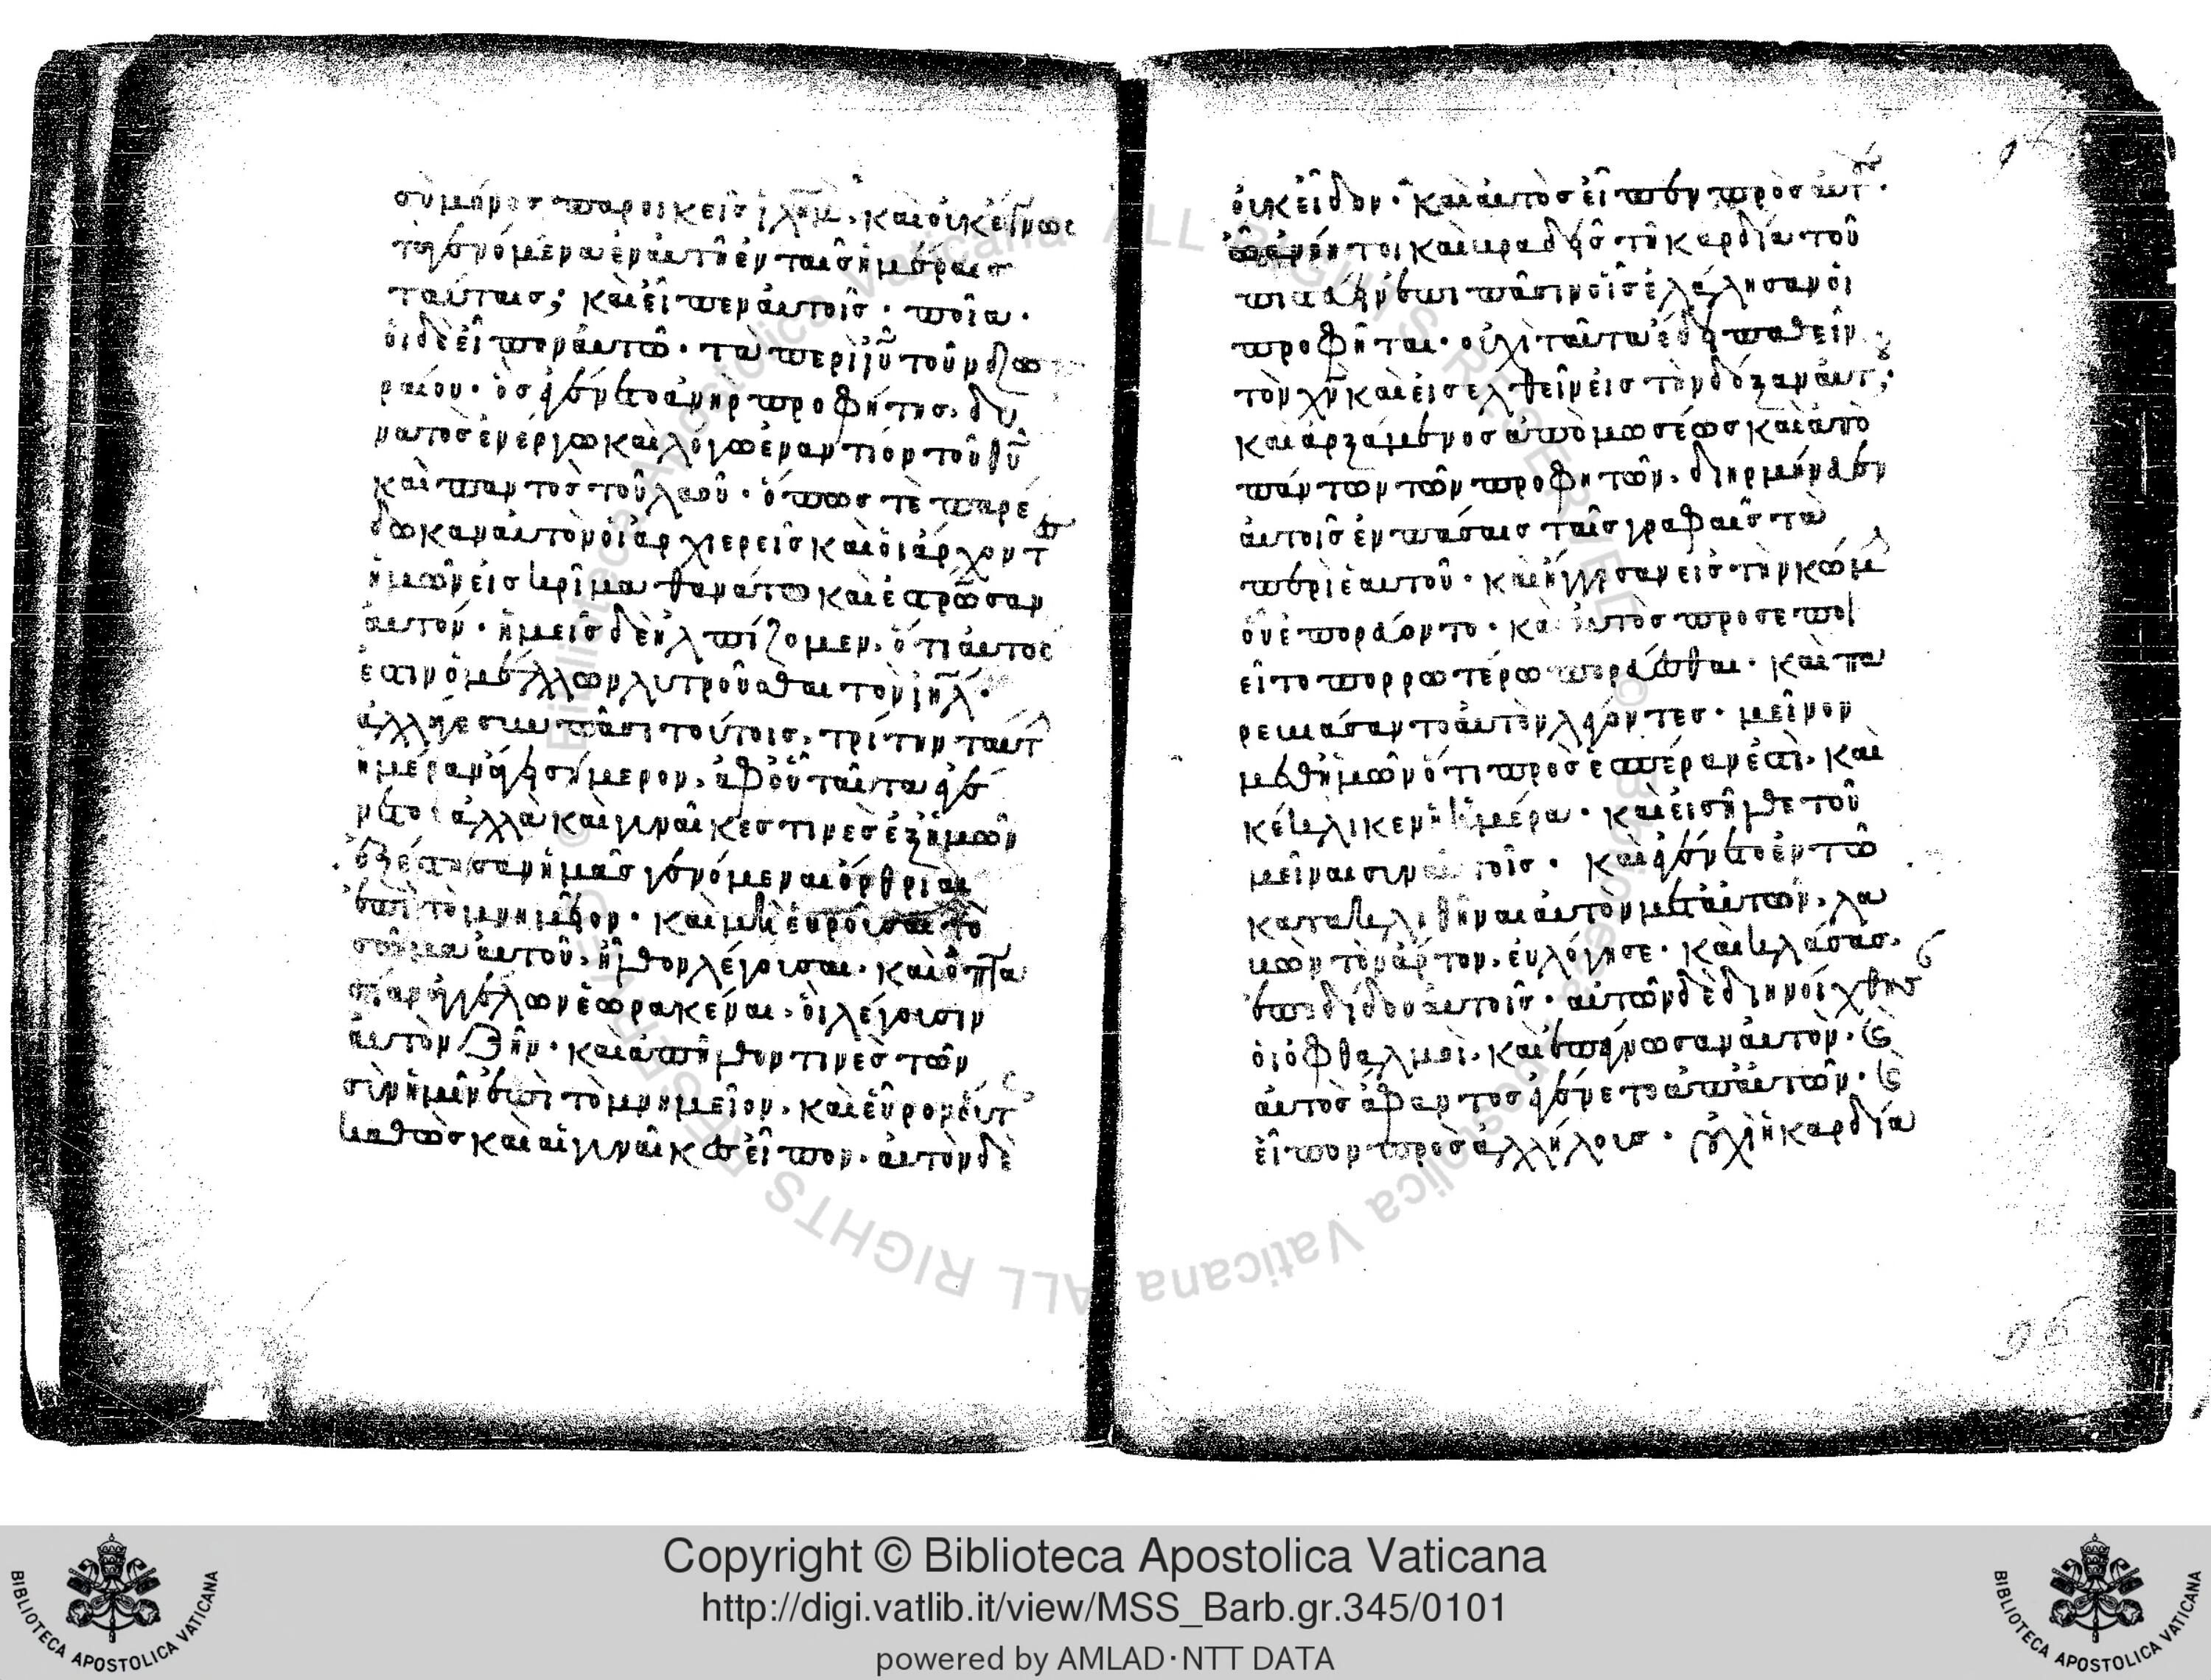 σὺ μόνος παροικεῖς ἰλημ, καὶ οὐκ ἔγνως
τὰ γενόμενα ἐν αὐτῆ ἐν ταῖς ἡμέραις
ταύταις; καὶ εἶπεν αὐτοῖς · ποῖα ·
οἱ δὲ εἶπον αὐτῶ · τὰ περὶ ιῦ τοῦ ναζω
ραίου · ὃς ἐγένετο ἀνὴρ προφήτης, δυ
νατὸς ἐν ἔργω καὶ λόγω ἐναντίον τοῦ θῦ
καὶ παντὸς τοῦ λαοῦ · ὅπως τὲ παρέ
δωκαν αὐτὸν οἱ ἀρχιερεῖς καὶ οἱ ἄρχοντ
ἡμῶν εἰς κρῖμα θανάτω καὶ ἐστρωσαν
αὐτόν · ἡμεῖς δὲ ἠλπίζομεν, ὅτι αὐτός
ἐστιν ὁ μέλλων λυτροῦσθαι τὸν ιηλ ·
ἀλλάγε σὺν πᾶσι τούτοις, τρίτην ταύτ
ἡμέραν ἄγει σήμερον, ἀφ οὗ ταῦτα ἐγέ
νετο · ἀλλὰ καὶ γυναῖκες τινὲς ἐξ ἡμῶν
ἐξέστησαν ἡμᾶς γενόμεναι ὄρθριαι
ἐπὶ τὸ μνημεῖον · καὶ μὴ εὑροῦσαι τὸ
σῶμα αὐτοῦ, ἦλθον λέγουσαι · καὶ ὀπτα
σίαν ἀγγέλων ἑωρακέναι, οἳ λέγουσιν
αὐτὸν ζῆν · καὶ ἀπῆλθον τινὲς τῶν
σὺν ἡμῖν ἐπὶ τὸ μνημεῖον, καὶ εὗρον οὕτ
καθὼς καὶ αἱ γυναῖκες εἶπον · αὐτὸν δὲ
οὐκ εἶδον · καὶ αὐτὸς εἶπεν πρὸς αὐτ ·
ὦ ἀνόητοι καὶ βραδεῖς τῆ καρδία τοῦ
πιστεύειν ἐπὶ πᾶσιν οἷς ἐλάλησαν οἱ
προφῆται · οὐχὶ ταῦτα ἔδει παθεῖν
τὸν χν καὶ εἰσελθεῖν εἰς τὴν δόξαν αὐτ;
καὶ ἀρξάμενος ἀπὸ μωσέως καὶ ἀπὸ
πάντων τῶν προφητῶν, διηρμήνευεν
αὐτοῖς ἐν πάσαις ταῖς γραφαῖς τὰ
περὶ ἑαυτοῦ · καὶ ἤγγισαν εἰς τὴν κώμ
οὗ ἐπορεύοντο · καὶ αὐτὸς προσεποι
εῖτο πορρωτέρω πορεύεσθαι · καὶ πα
ρεβιάσαντο αὐτὸν λέγοντες · μεῖνον
μεθ ἡμῶν ὅτι πρὸς ἑσπέραν ἐστὶ, καὶ
κέκλικεν ἡ ἡμέρα · καὶ εἰσῆλθε τοῦ
μεῖναι σὺν αὐτοῖς · καὶ ἐγένετο ἐν τῶ
κατακλιθῆναι αὐτὸν μετ αὐτῶν, λα
βὼν τὸν ἄρτον, εὐλόγησε · καὶ κλάσας,
ἐπεδίδου αὐτοῖς · αὐτῶν δὲ διηνοίχθησ
οἱ ὀφθαλμοὶ, καὶ ἐπέγνωσαν αὐτὸν · καὶ
αὐτὸς ἄφαντος ἐγένετο ἀπ αὐτῶν · καὶ
εἶπον πρὸς ἀλλήλους · οὐχὶ ἡ καρδία
96
Copyright © Biblioteca Apostolica Vaticana
http://digi.vatlib.it/view/MSS_Barb.gr.345/0101
powered by AMLAD·NTT DATA
BIBLIOTECA APOSTOLICA VATICANA
BIBLIOTECA APOSTOLICA VATICANA